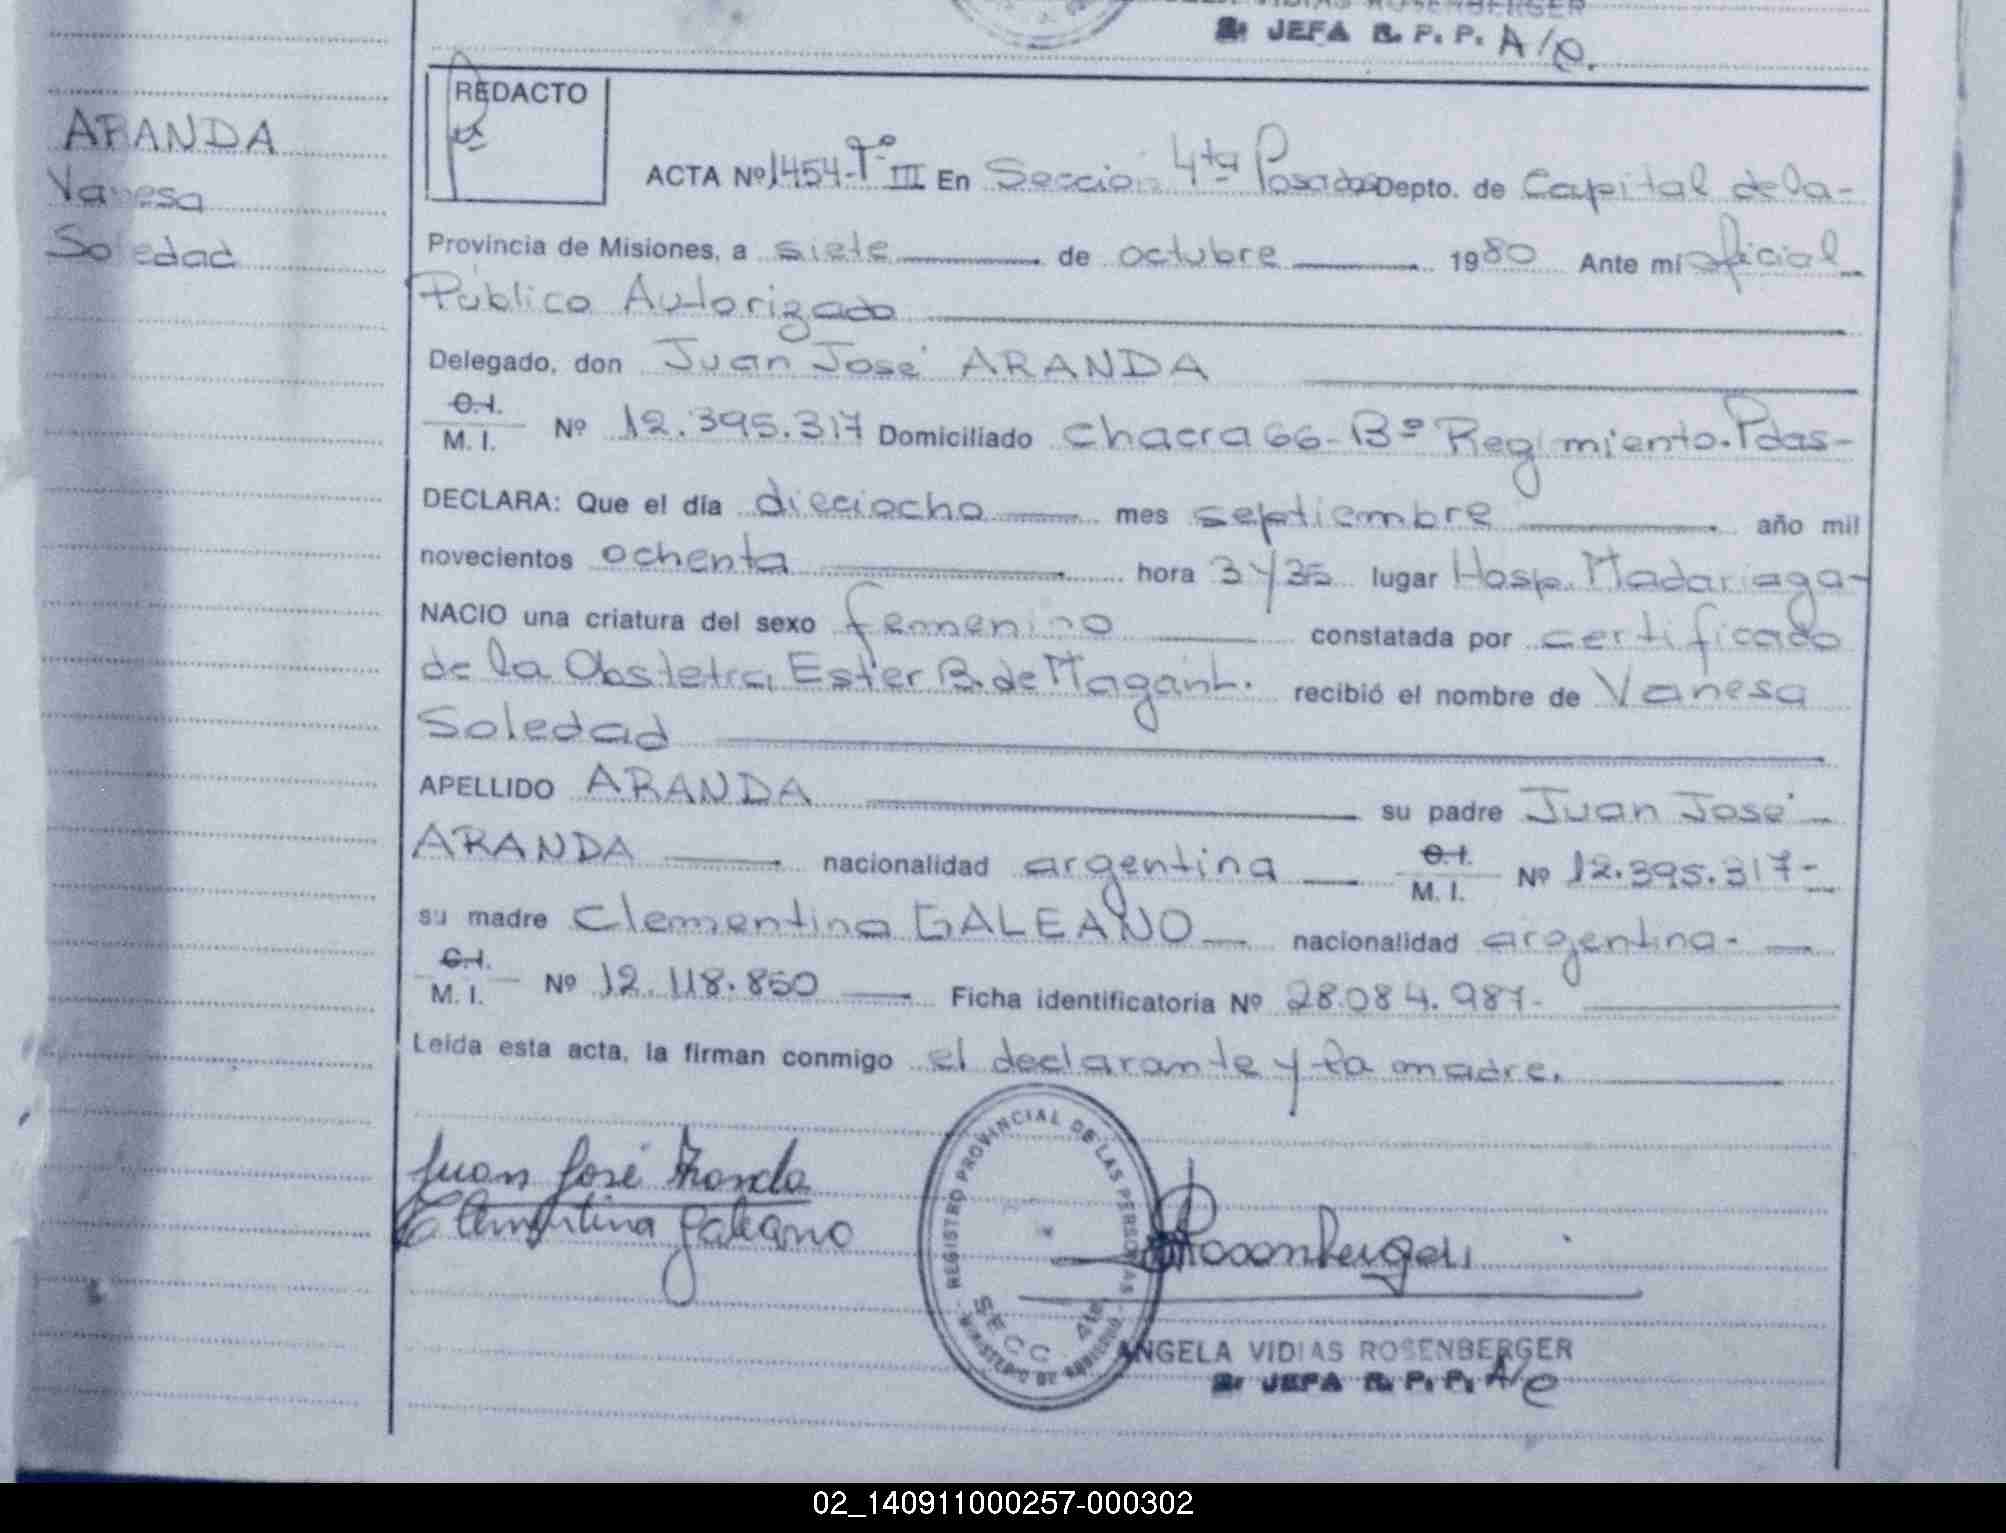 ANGELA VIDIAS ROSENBERGER
2ª JEFA R. P. P. A/c.
REDACTO
ARANDA
Vanesa
Soledad
ACTA Nº 1454-Tº III En Sección 4ta Posadas Depto. de Capital de la-
Provincia de Misiones, a siete de octubre 1980 Ante mi oficial
Público Autorizado
Delegado, don Juan José ARANDA
C.I.
M. I. Nº 12.395.317 Domiciliado Chacra 66-Bº Regimiento-Pdas-
DECLARA: Que el día dieciocho mes septiembre año mil
novecientos ochenta hora 3 y 35 lugar Hosp. Madariaga-
NACIO una criatura del sexo femenino constatada por certificado
de la Obstetra Ester B. de recibió el nombre de Vanesa
Soledad
APELLIDO ARANDA su padre Juan José
ARANDA nacionalidad argentina C.I.
M. I. Nº 12.395.317-
su madre Clementina GALEANO nacionalidad argentina-
C.I.
M. I. Nº 12.118.850 Ficha identificatoria Nº 28.084.987-
Leída esta acta, la firman conmigo el declarante y la madre.
Juan José Aranda
Clementina Galeano
REGISTRO PROVINCIAL DE LAS PERSONAS
SECC. 4ta
MINISTERIO DE GOBIERNO
Rosenberger
ANGELA VIDIAS ROSENBERGER
2ª JEFA R. P. P. A/c
02_140911000257-000302